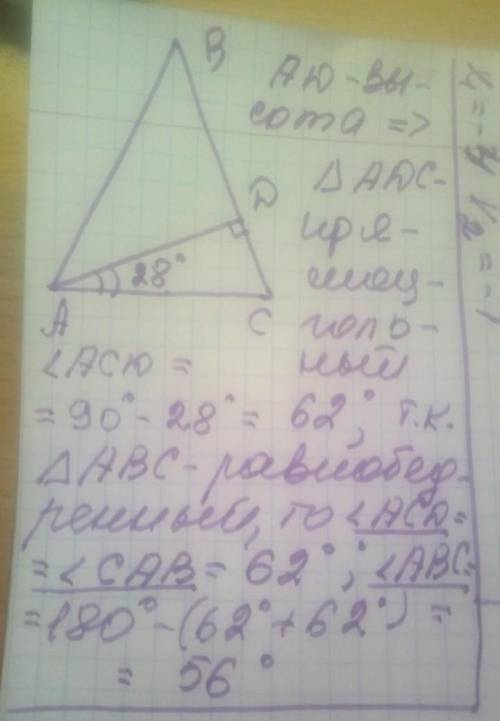 B
AD - вы-
сота =>
D
△ADC-
пря-
моу-
голь-
ный
28°
A
C
∠ACD =
= 90° - 28° = 62°, т.к.
△ABC - равнобед-
ренный, то ∠ACD =
= ∠CAB = 62°; ∠ABC =
= 180° - (62° + 62°) =
= 56°